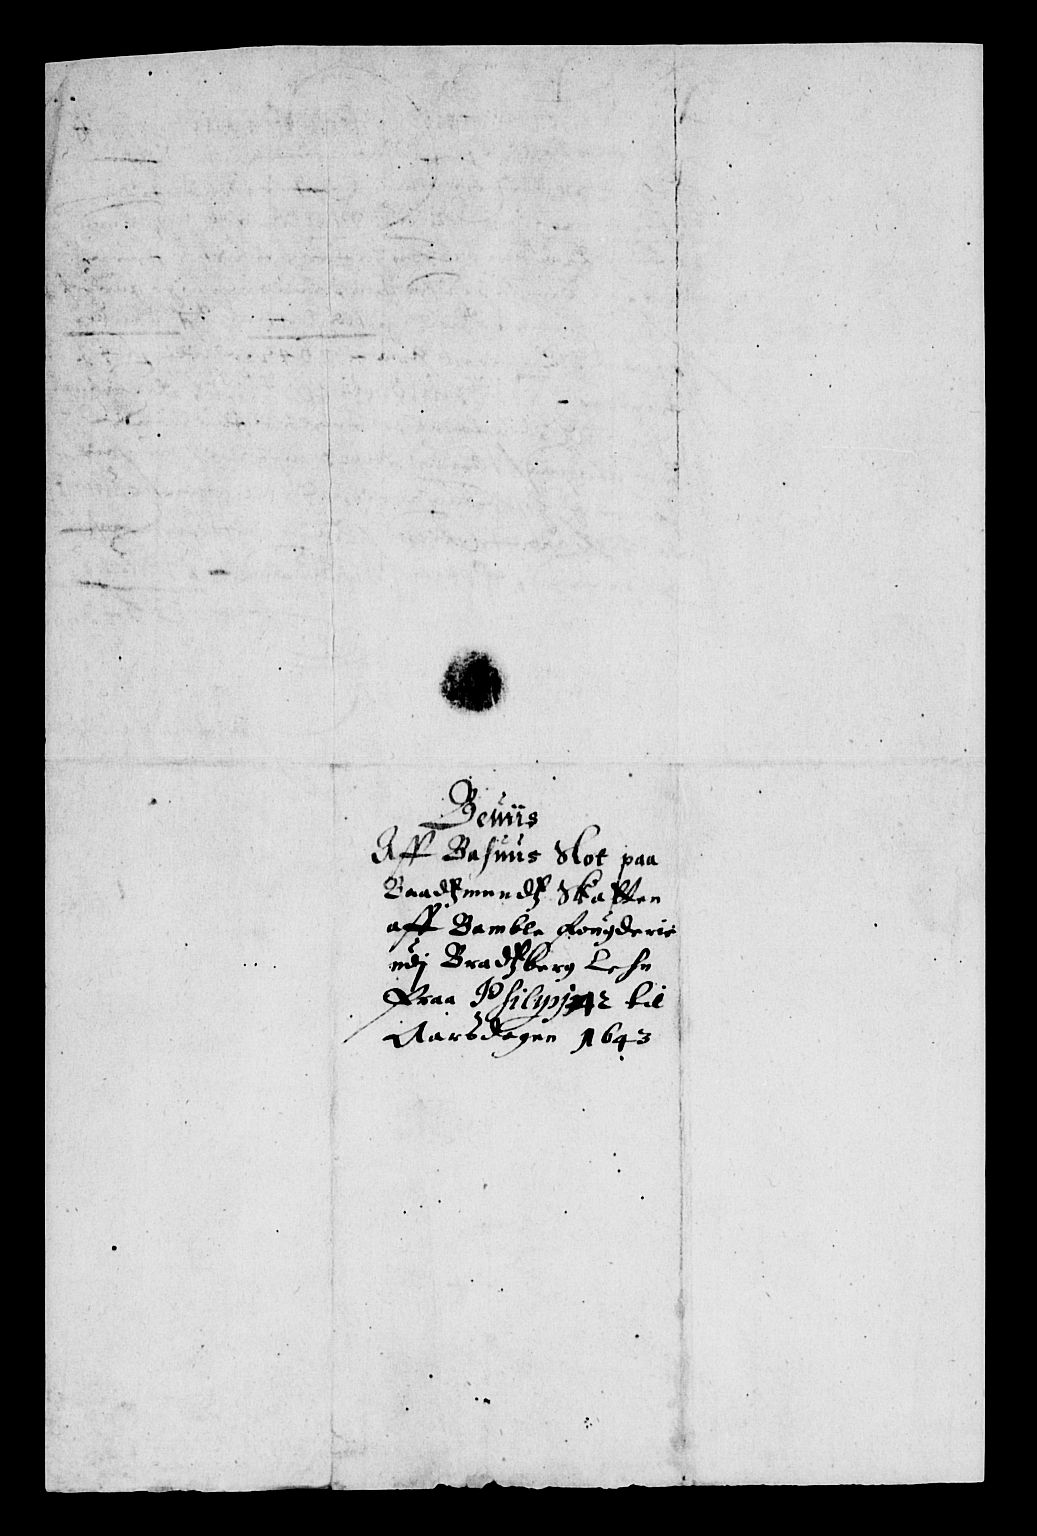 Beuiis
Aff Bahuus Slot paa
Baadtzmandtz Skatten
aff Bamble fougderie
udj Bradtzberg Lehn
fraa Philipj 42 til
Aarsdagen 1643